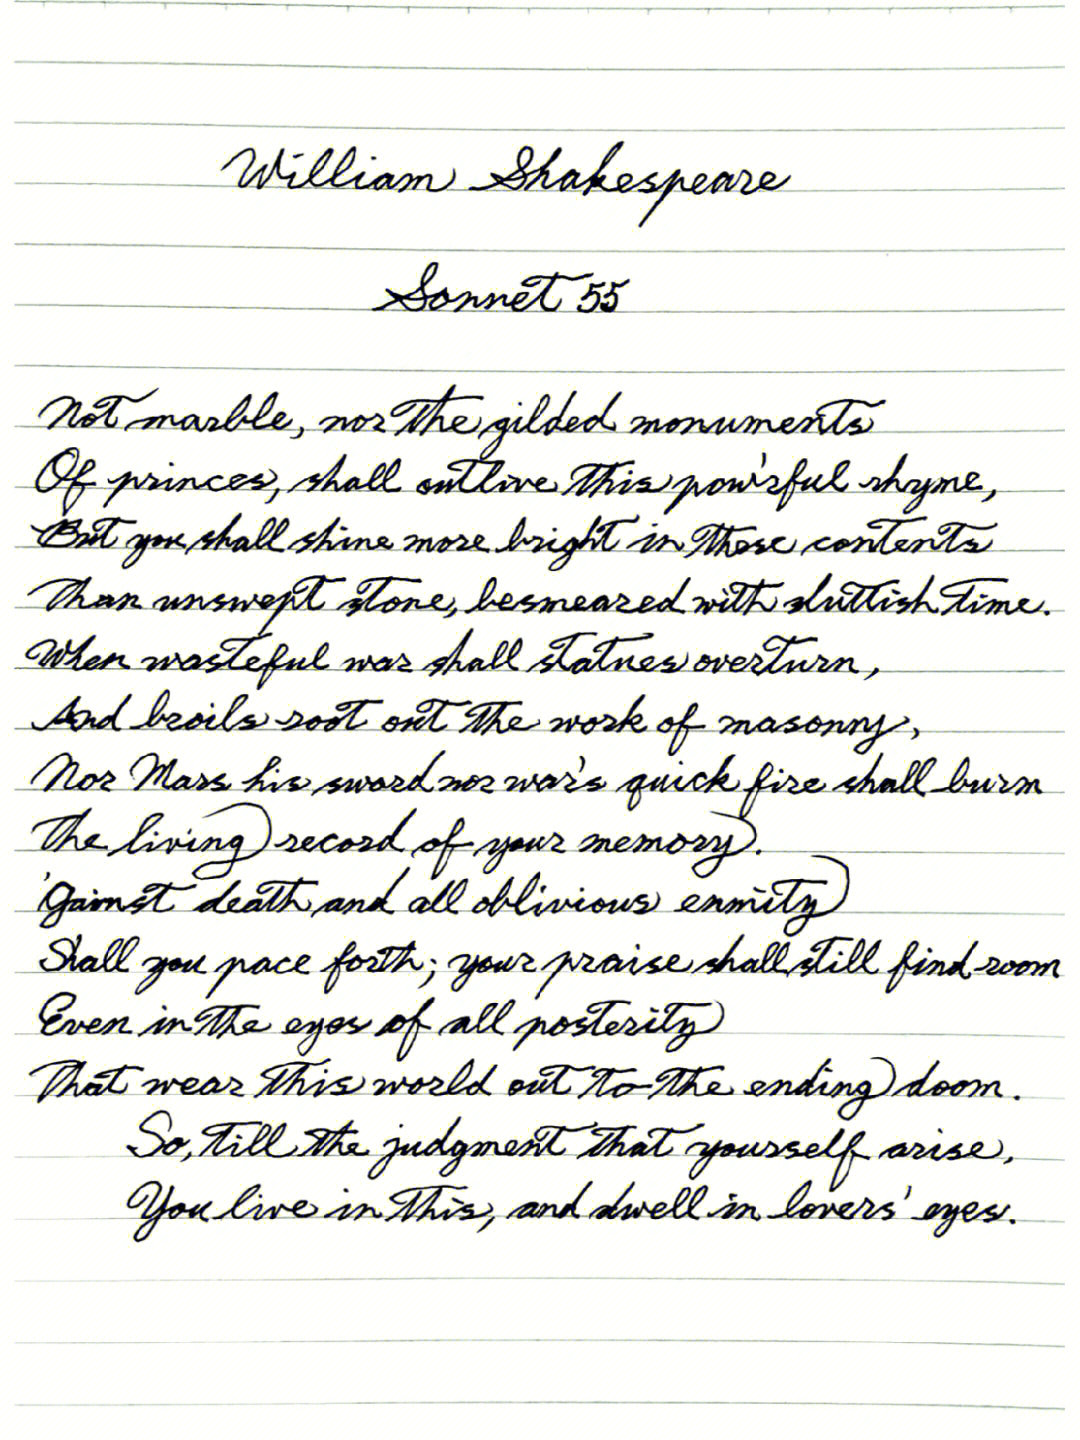 William Shakespeare
Sonnet 55
Not marble, nor the gilded monuments
Of princes, shall outlive this pow'rful rhyme,
But you shall shine more bright in these contents
Than unswept stone, besmeared with sluttish time.
When wasteful war shall statues overturn,
And broils root out the work of masonry,
Nor Mars his sword nor war's quick fire shall burn
The living record of your memory.
'Gainst death and all oblivious enmity
Shall you pace forth; your praise shall still find room
Even in the eyes of all posterity
That wear this world out to the ending doom.
So, till the judgment that yourself arise,
You live in this, and dwell in lovers' eyes.